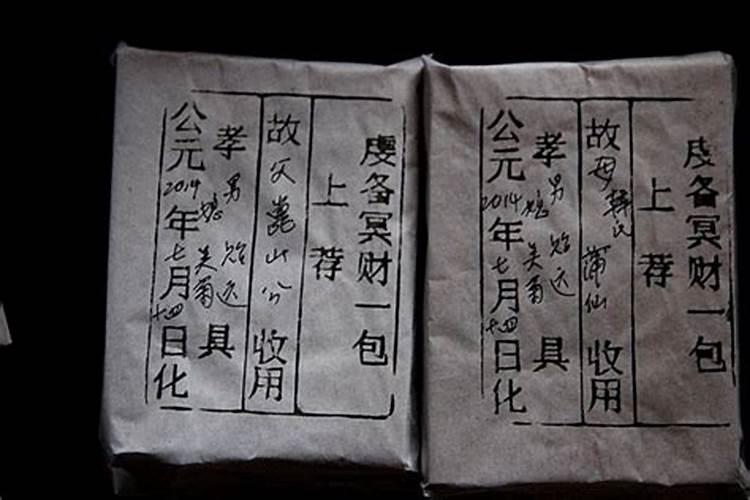 虔备冥财一包
上荐
故父山公收用
孝男贻远媳菊具
公元2014年七月十四日化
虔备冥财一包
上荐
故母韩氏蒲仙收用
孝男贻远媳菊具
公元2014年七月十四日化